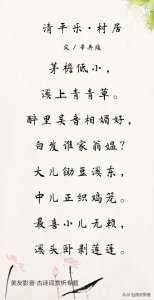 清平乐·村居
宋/辛弃疾
茅檐低小，
溪上青青草。
醉里吴音相媚好，
白发谁家翁媪？
大儿锄豆溪东，
中儿正织鸡笼。
最喜小儿无赖，
溪头卧剥莲蓬。
美友影音·古诗词赏析专题